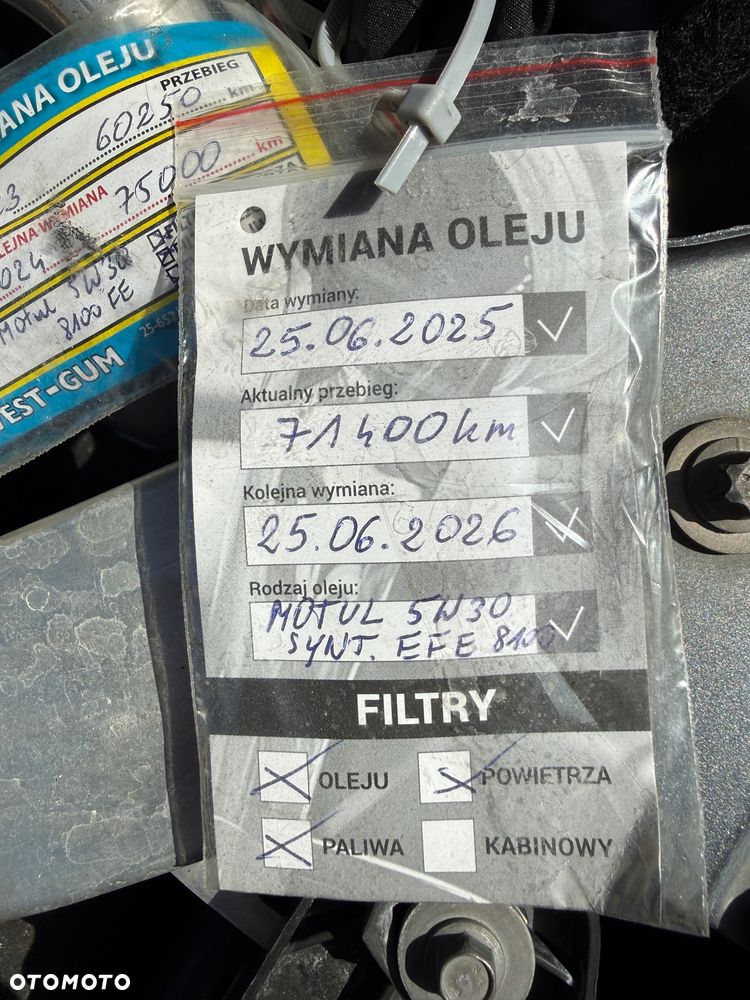 ANA OLEJU
PRZEBIEG
60250 km
75000 km
LEJNA WYMIANA
MOTUL 5W30
8100 FE
TEST-GUM
WYMIANA OLEJU
Data wymiany:
25.06.2025
Aktualny przebieg:
71400km
Kolejna wymiana:
25.06.2026
Rodzaj oleju:
MOTUL 5W30
SYNT. EFE 8100
FILTRY
OLEJU
POWIETRZA
PALIWA
KABINOWY
OTOMOTO